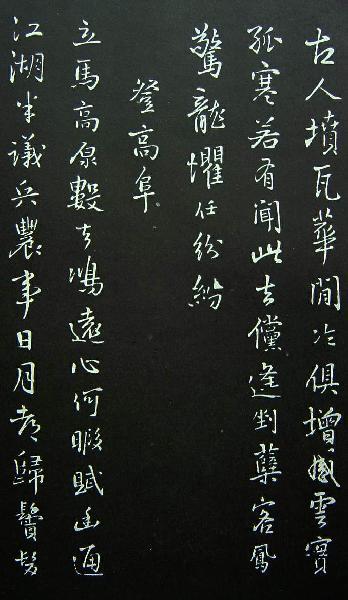 古人墳瓦華間冷俱增感雲賓
孤寒若有聞此去儻逢封蘖客鳳
驚龍懼任紛紛
登高阜
立馬高原數去鴻遠心何暇賦幽通
江湖半議兵農事日月都歸鬢髮